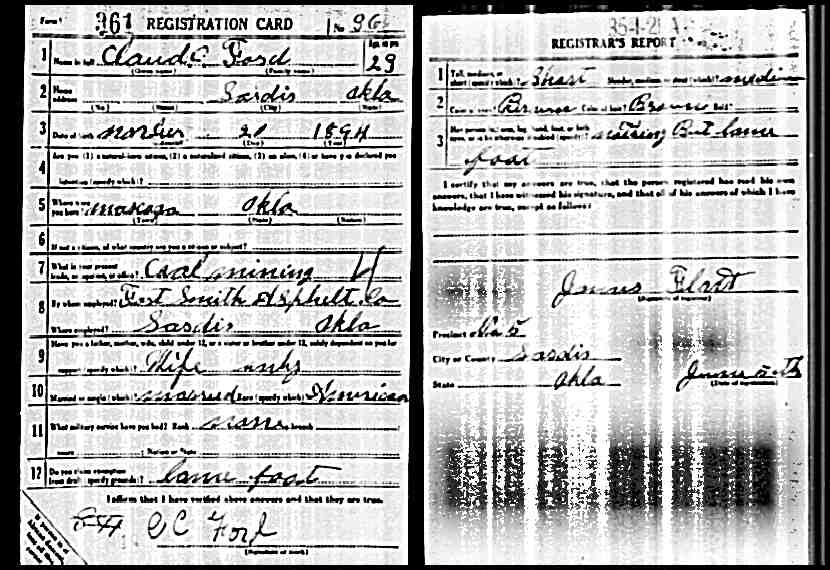 Form 1 361 REGISTRATION CARD No 96
1 Name in full Claud C Ford Age in yrs 23
(Given name) (Family name)
2 Home address Sardis Okla
(No.) (Street) (City) (State)
3 Date of birth 21 1894
(Month) (Day) (Year)
4 Are you (1) a natural-born citizen, (2) a naturalized citizen, (3) an alien, (4) or have you declared your
intention (specify which)?
5 Where were you born? Okla
(Town) (State) (Nation)
6 If not a citizen, of what country are you a citizen or subject?
7 What is your present trade, occupation, or office? Coal mining
8 By whom employed? Fort Smith Asphelt Co
Where employed? Sardis Okla
9 Have you a father, mother, wife, child under 12, or a sister or brother under 12, solely dependent on you for
support (specify which)? Wife only
10 Married or single (which)? married Race (specify which)? American
11 What military service have you had? Rank none branch
years Nation or State
12 Do you claim exemption from draft (specify grounds)? lame foot
I affirm that I have verified above answers and that they are true.
C C Ford
(Signature or mark)
35-1-21 A
REGISTRAR'S REPORT
1 Tall, medium, or short (specify which)? Short Slender, medium, or stout (which)? medium
2 Color of eyes? Brown Color of hair? Brown Bald?
3 Has person lost arm, leg, hand, foot, or both eyes, or is he otherwise disabled (specify)? nothing But lame
foot
I certify that my answers are true, that the person registered has read his own
answers, that I have witnessed his signature, and that all of his answers of which I have
knowledge are true, except as follows:
James
(Signature of registrar)
Precinct No 5
City or County Sardis
State Okla June 5th
(Date of registration)